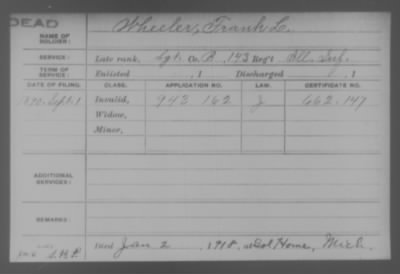 DEAD
Wheeler, Frank L.
NAME OF SOLDIER:
SERVICE: Late rank, Sgt. Co. B, 143 Reg't Ill. Inf.
TERM OF SERVICE: Enlisted , 1 Discharged , 1
DATE OF FILING. CLASS. APPLICATION NO. LAW. CERTIFICATE NO.
1890. Sept. 1 Invalid, 943 162 J 662.147
Widow,
Minor,
ADDITIONAL SERVICES:
REMARKS:
Died Jan 2, 1918, at Sol Home, Mich.